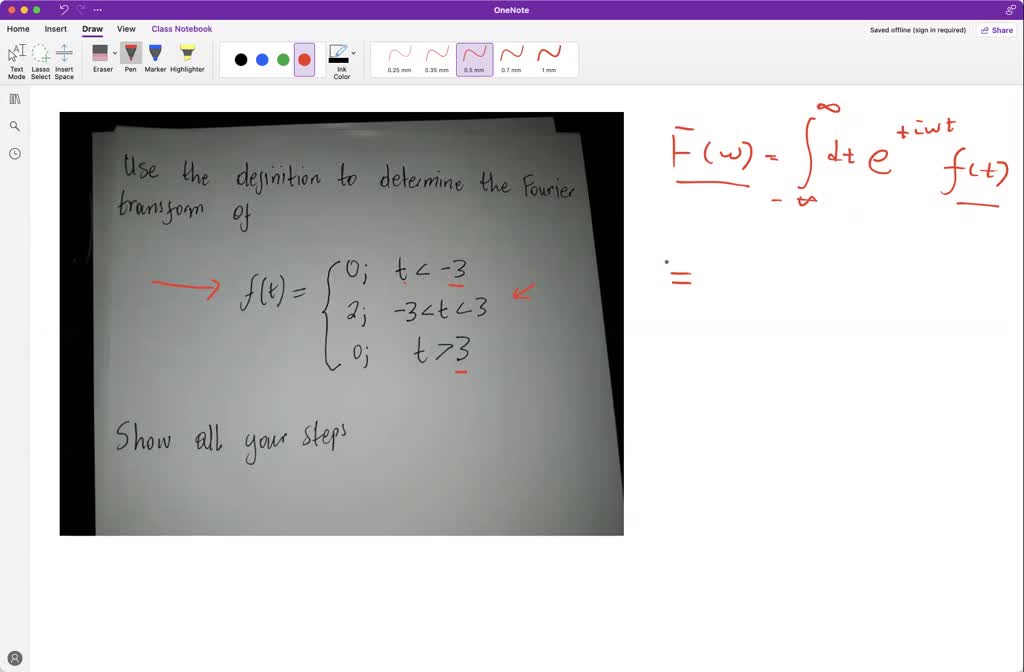 OneNote
Home Insert Draw View Class Notebook
Saved offline (sign in required) Share
Text Mode Lasso Select Insert Space Eraser Pen Marker Highlighter Ink Color 0.25 mm 0.35 mm 0.5 mm 0.7 mm 1 mm
Use the definition to determine the Fourier
transform of
f(t) = { 0; t < -3
2; -3 < t < 3
0; t > 3
Show all your steps
F(w) = ∫_{-∞}^{∞} dt e^{+iwt} f(t)
=